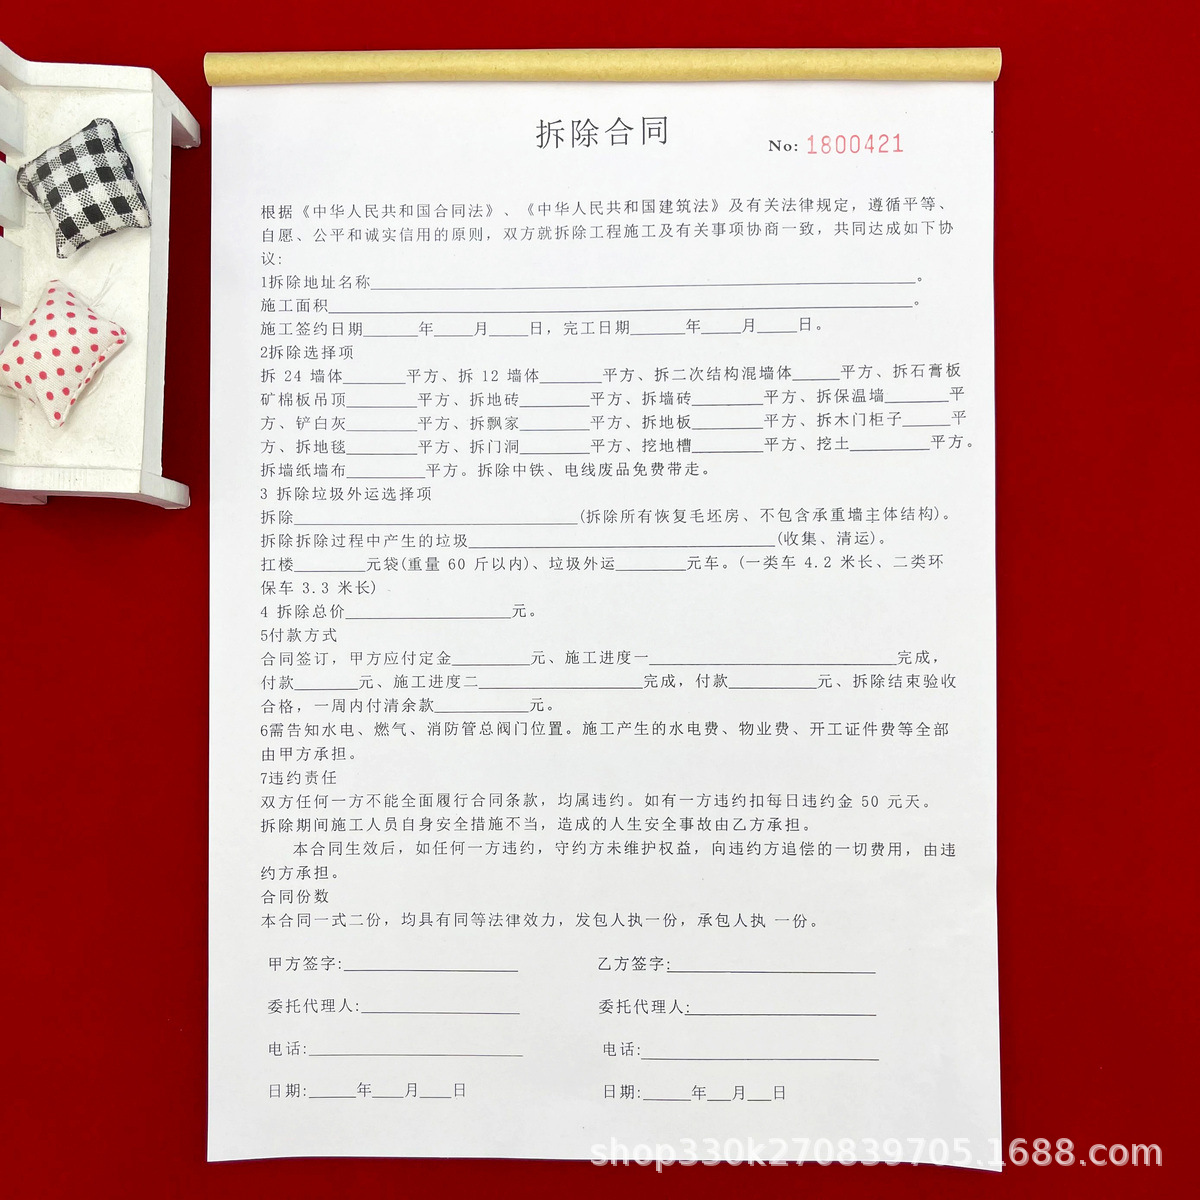 拆除合同
No: 1800421
根据《中华人民共和国合同法》、《中华人民共和国建筑法》及有关法律规定，遵循平等、
自愿、公平和诚实信用的原则，双方就拆除工程施工及有关事项协商一致，共同达成如下协
议:
1拆除地址名称______。
施工面积______。
施工签约日期______年____月____日，完工日期______年____月____日。
2拆除选择项
拆 24 墙体______平方、拆 12 墙体______平方、拆二次结构混墙体_____平方、拆石膏板
矿棉板吊顶______平方、拆地砖______平方、拆墙砖______平方、拆保温墙______平
方、铲白灰______平方、拆飘家______平方、拆地板______平方、拆木门柜子_____平
方、拆地毯______平方、拆门洞______平方、挖地槽______平方、挖土______平方。
拆墙纸墙布______平方。拆除中铁、电线废品免费带走。
3 拆除垃圾外运选择项
拆除______(拆除所有恢复毛坯房、不包含承重墙主体结构)。
拆除拆除过程中产生的垃圾______(收集、清运)。
扛楼______元袋(重量 60 斤以内)、垃圾外运______元车。(一类车 4.2 米长、二类环
保车 3.3 米长)
4 拆除总价______元。
5付款方式
合同签订，甲方应付定金______元、施工进度一______完成，
付款______元、施工进度二______完成，付款______元、拆除结束验收
合格，一周内付清余款______元。
6需告知水电、燃气、消防管总阀门位置。施工产生的水电费、物业费、开工证件费等全部
由甲方承担。
7违约责任
双方任何一方不能全面履行合同条款，均属违约。如有一方违约扣每日违约金 50 元天。
拆除期间施工人员自身安全措施不当，造成的人生安全事故由乙方承担。
本合同生效后，如任何一方违约，守约方未维护权益，向违约方追偿的一切费用，由违
约方承担。
合同份数
本合同一式二份，均具有同等法律效力，发包人执一份，承包人执 一份。
甲方签字:______ 乙方签字:______
委托代理人:______ 委托代理人:______
电话:______ 电话:______
日期:_____年___月___日 日期:_____年___月___日
shop330k270839705.1688.com